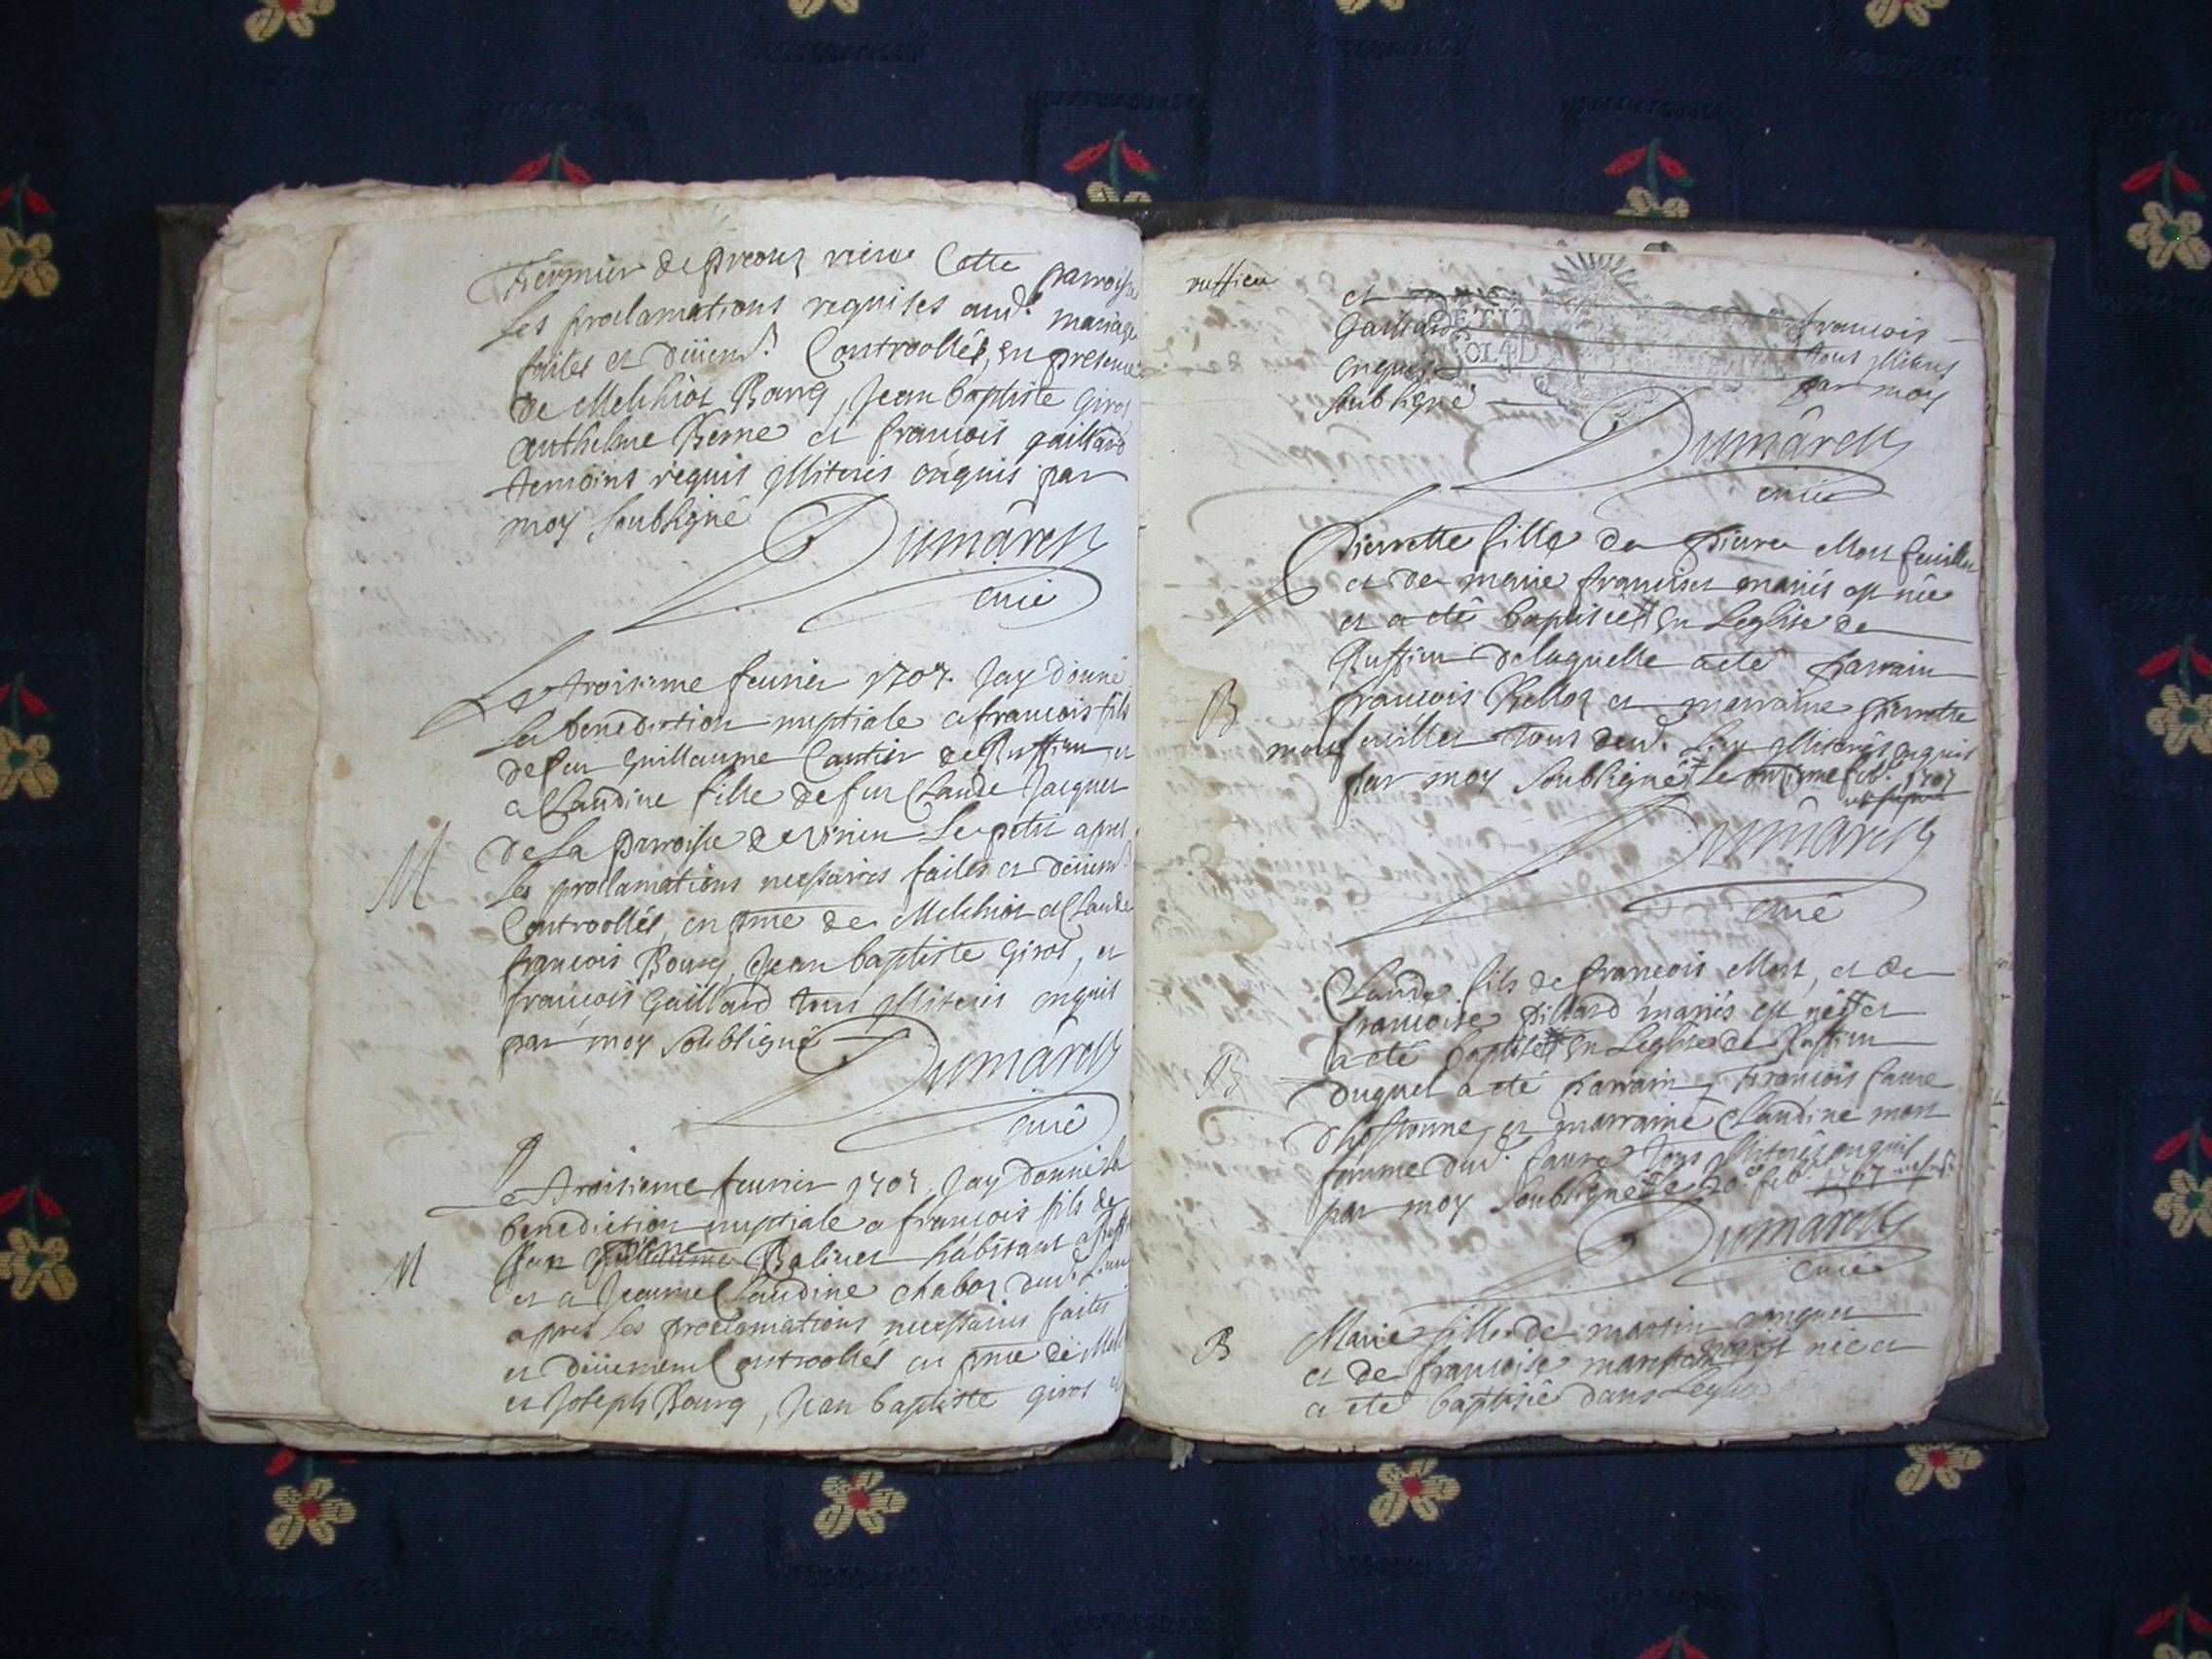 fermier de preoux riere Cette parroisse
Les proclamations requises aud.t mariage
faites et düem.t Controollés, en presence
de Melchior Bourg, Jean baptiste Giros
anthelme Berne et francois gaillard
temoins requis illiterés enquis par
moy soubsigné
Dumarest
curé
Le troisieme feurier 1707. Jay donné
La benediction nuptiale a francois fils
de feu guillaume Cantier de Ruffieu et
a Claudine fille de feu Claude Jacquet
M
de La parroisse de virieu Le petit apres
Les proclamations necessaires faites et düem.t
Controollés, en pnce de Melchior et Claude
francois Bourg, Jean baptiste Giros, et
francois Gaillard tous illiterés enquis
par moy soubsigné
Dumarest
curé
Le troisieme feurier 1707. Jay donné la
benediction nuptiale a francois fils de
M
feu guillaume Balinet habitant a
et a Jeanne Claudine chaboz dud. Lieu
apres Les proclamations necessaires faites
et düement Controollés en pnce de
et Joseph Bourg, Jean baptiste giros et
ruffieu
et francois
Gaillard tous illiterés
enquis par moy
soubsigné
Dumarest
curé
Pierrette fille de pierre Monfeuillet
et de marie franciset mariés est née
et a eté baptisée En Leglise de
Ruffieu de laquelle a eté parrain
B
francois Belloz et marraine pierrette
monfeuillet tous dud. Lieu illiterés enquis
par moy soubsigné Le onzieme feb. 1707
Dumarest
curé
Claude fils de francois Most, et de
francoise pillard mariés est né et
a eté baptisé En Leglise de Ruffieu
B
duquel a eté parrain francois faure
d'hostonne, et marraine Claudine most
femme dud. faure tous illiterés enquis
par moy soubsigné Le 20e feb. 1707
Dumarest
curé
B
Marie fille de martin
et de francoise née et
a eté baptisée dans Leglise